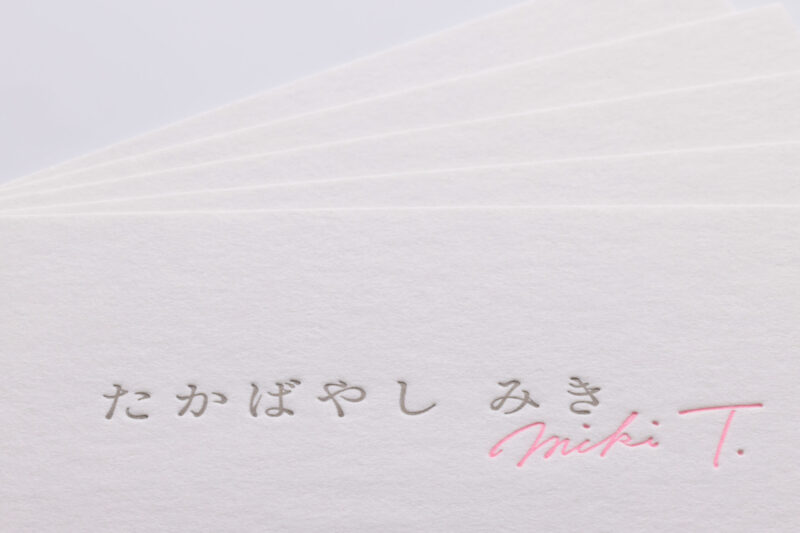 たかばやし みき
miki T.